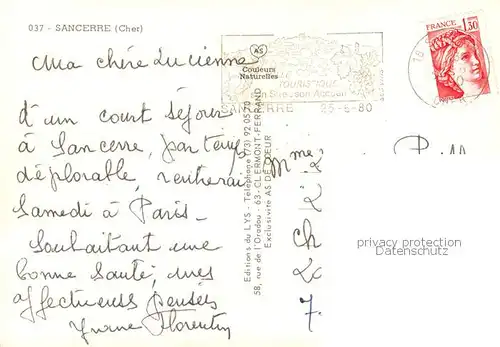 037 - SANCERRE (Cher)
Ma chère Lucienne
d'un court séjour
à Sancerre, par temps
déplorable, rentrerai
Samedi à Paris -
Souhaitant une
bonne santé, mes
affectueuses pensées
Yvonne Florentin
AS
Couleurs
Naturelles
TOURISTIQUE
son Site, son
SANCERRE 25-6-80
FRANCE
1,30
18
Editions du LYS - Téléphone (73) 92 05 70
58, rue de l'Oradou - 63 - CLERMONT-FERRAND
Exclusivité AS DE CŒUR
Mme
privacy protection
Datenschutz
7